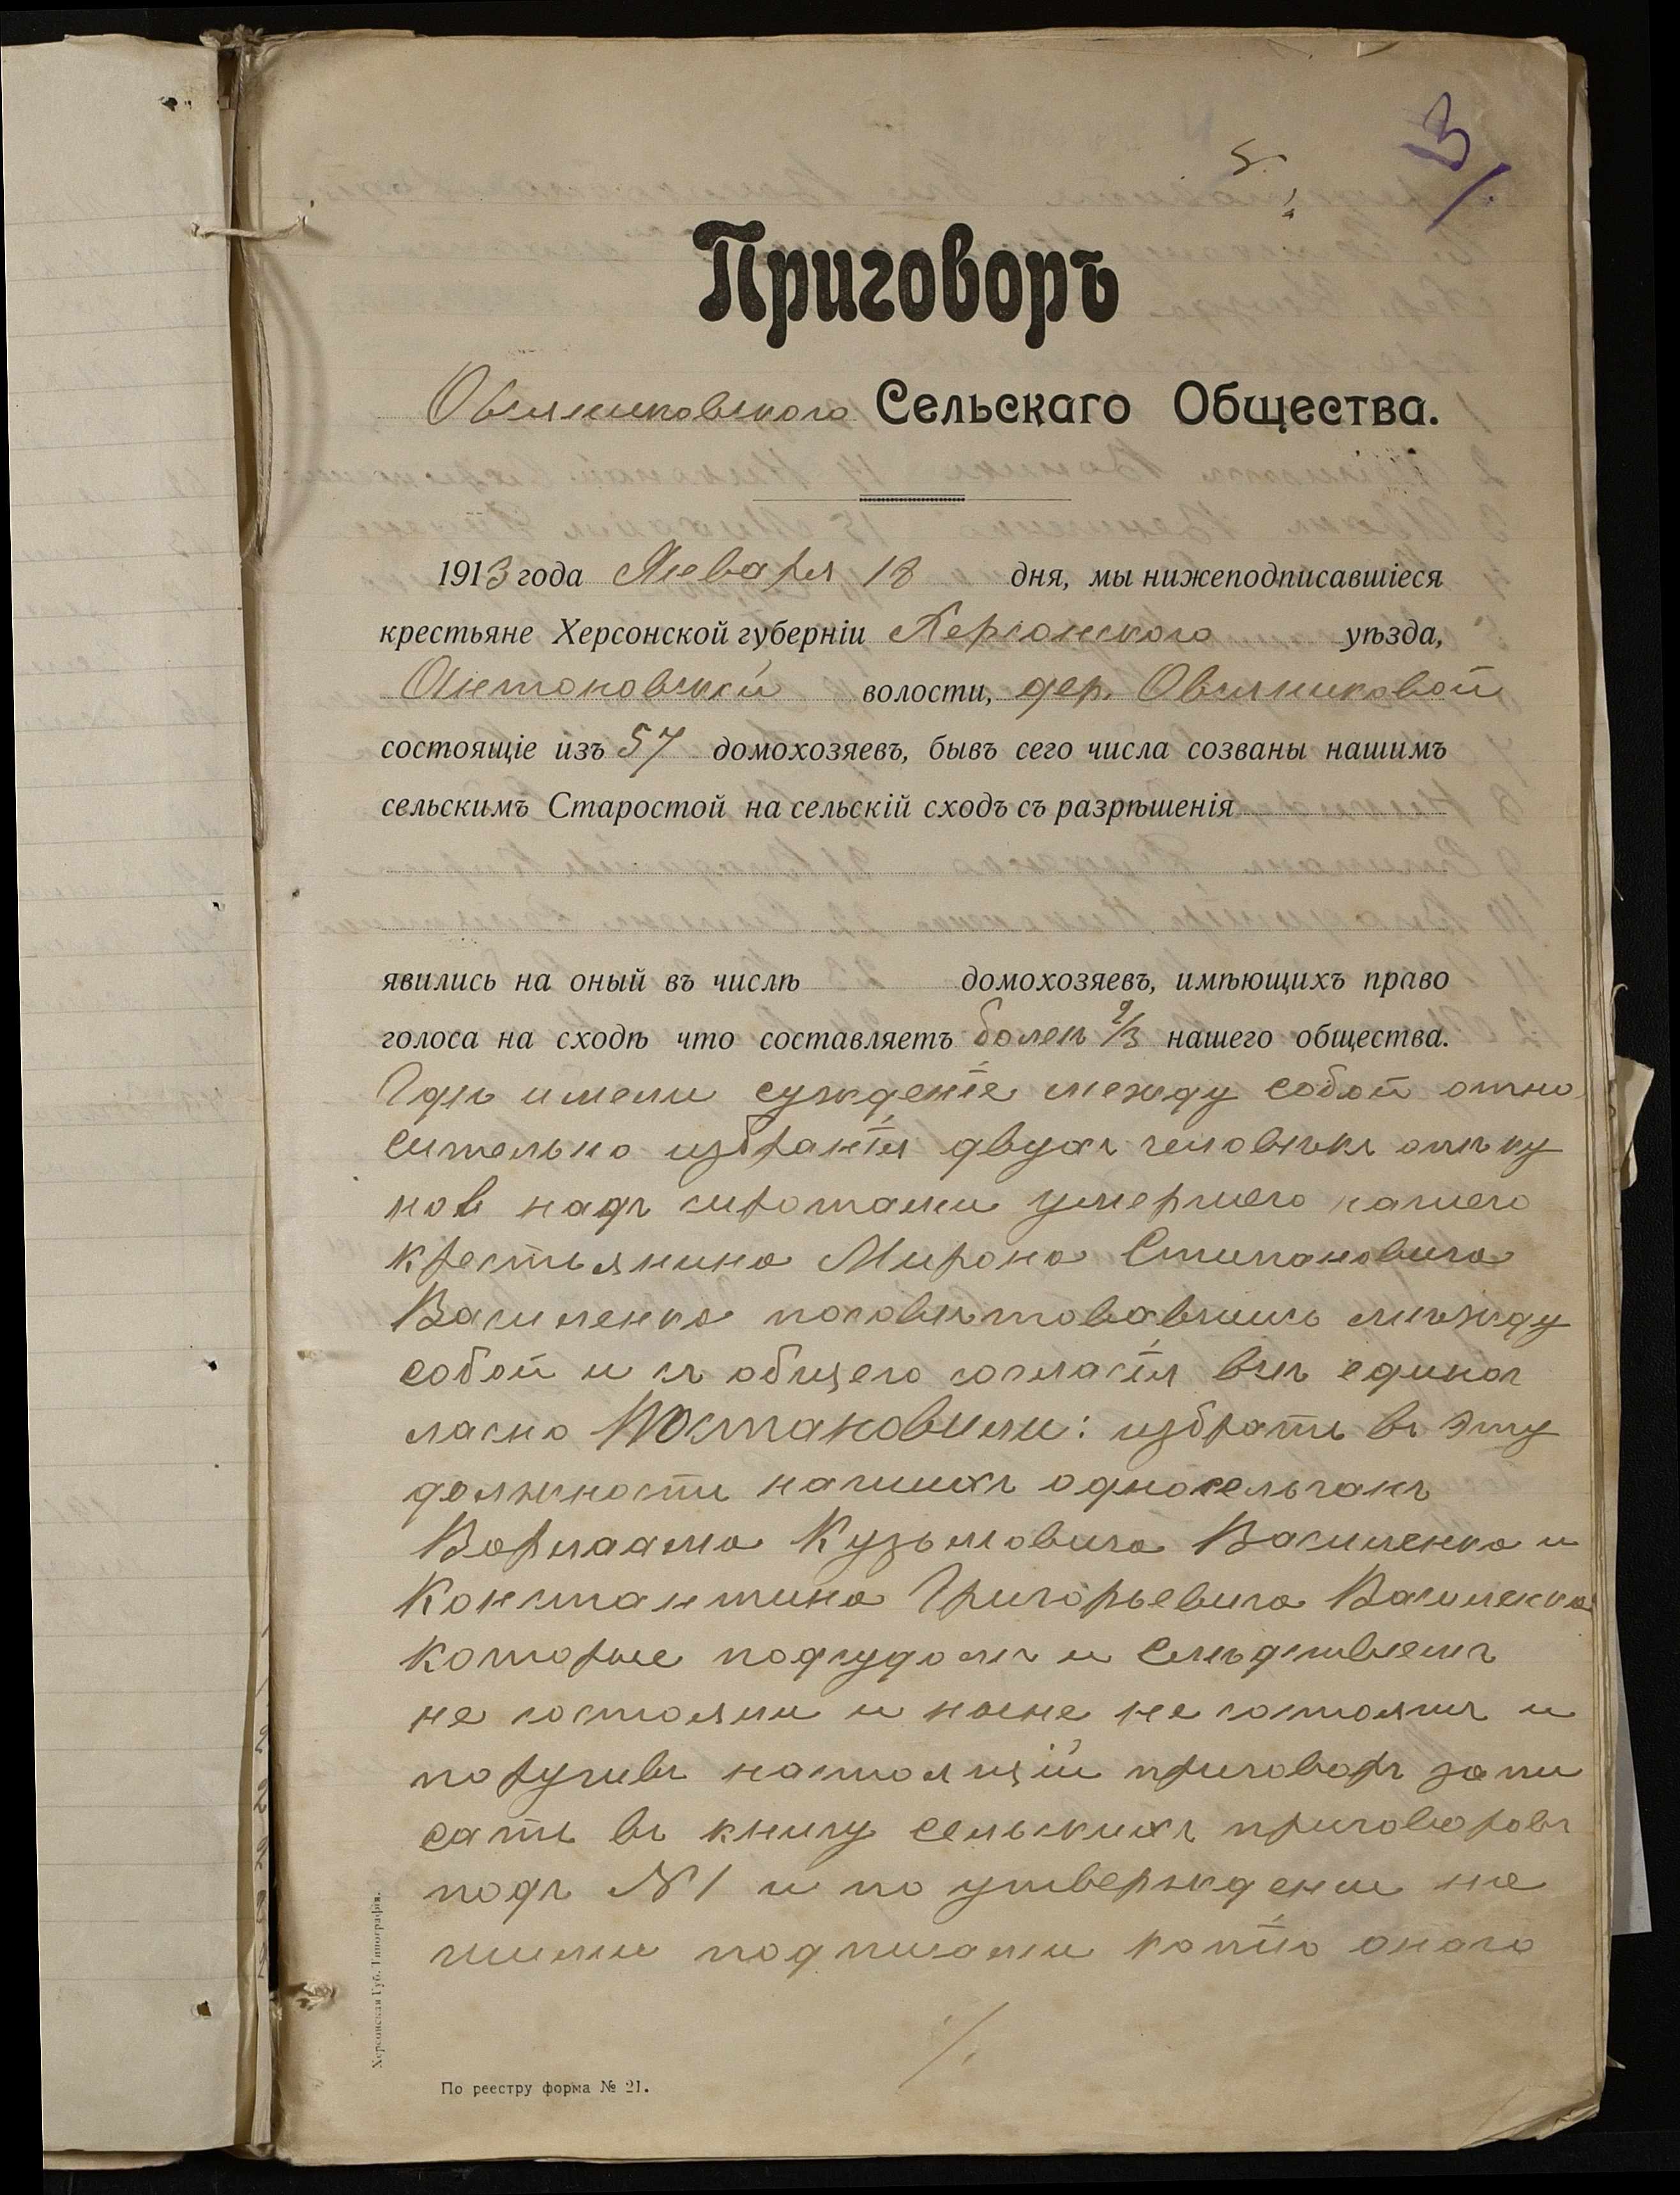 5.
3/.
Приговоръ
Овсяниковского Сельскаго Общества.
1913 года Января 18 дня, мы нижеподписавшіеся
крестьяне Херсонской губерніи Херсонского уѣзда,
Антоновской волости, дер. Овсяниковой
состоящіе изъ 57 домохозяевъ, бывъ сего числа созваны нашимъ
сельскимъ Старостой на сельскій сходъ съ разрѣшенія
явились на оный въ числѣ домохозяевъ, имѣющихъ право
голоса на сходѣ что составляетъ болеѣ 2/3 нашего общества.
Гдѣ имели сужденіе между собой отно
сительно избранія двухъ человѣкъ опѣку
нов надъ сиротами умершего нашего
крестьянина Мирона Стипановича
Василенка посовѣтовавшись мѣжду
собой и съ общего согласія всѣ единог
ласно Постановили: избрать въ эту
должность нашихъ односельчанъ
Варлаама Кузьмовича Василенка и
Константина Григорьевича Василенка
которые подсудомъ и Слѣдствiемъ
не состояли и ныне не состоятъ и
поручивъ настоящій приговоръ запи
сать въ книгу сельскихъ приговоровъ
подъ № 1 и по утверждении на
шими подписами копію оного
/.
Херсонская Губ. Типографія.
По реестру форма № 21.